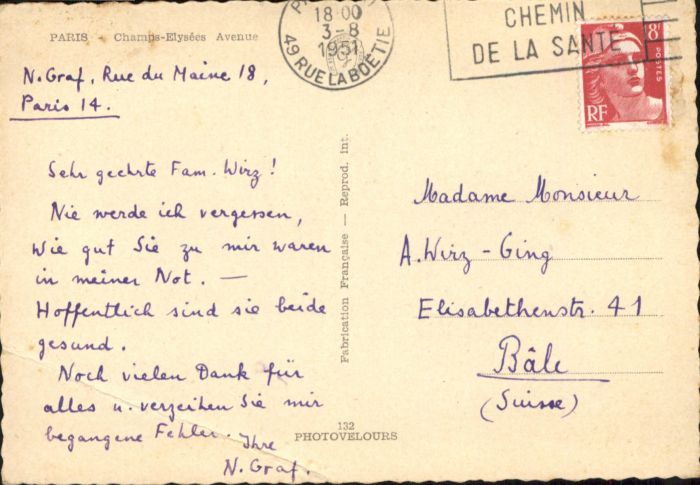 PARIS - Champs-Elysées Avenue
18 00
3-8
1951
49 RUE LA BOETIE
CHEMIN
DE LA SANTE
8F
POSTES
RF
N. Graf, Rue du Maine 18,
Paris 14.
Sehr geehrte Fam. Wirz!
Nie werde ich vergessen,
wie gut Sie zu mir waren
in meiner Not. —
Hoffentlich sind sie beide
gesund.
Noch vielen Dank für
alles u. verzeihen Sie mir
begangene Fehler. Ihre
N. Graf.
Fabrication Française — Reprod. int.
132
PHOTOVELOURS
Madame Monsieur
A. Wirz - Ging
Elisabethenstr. 41
Bâle
(Suisse)